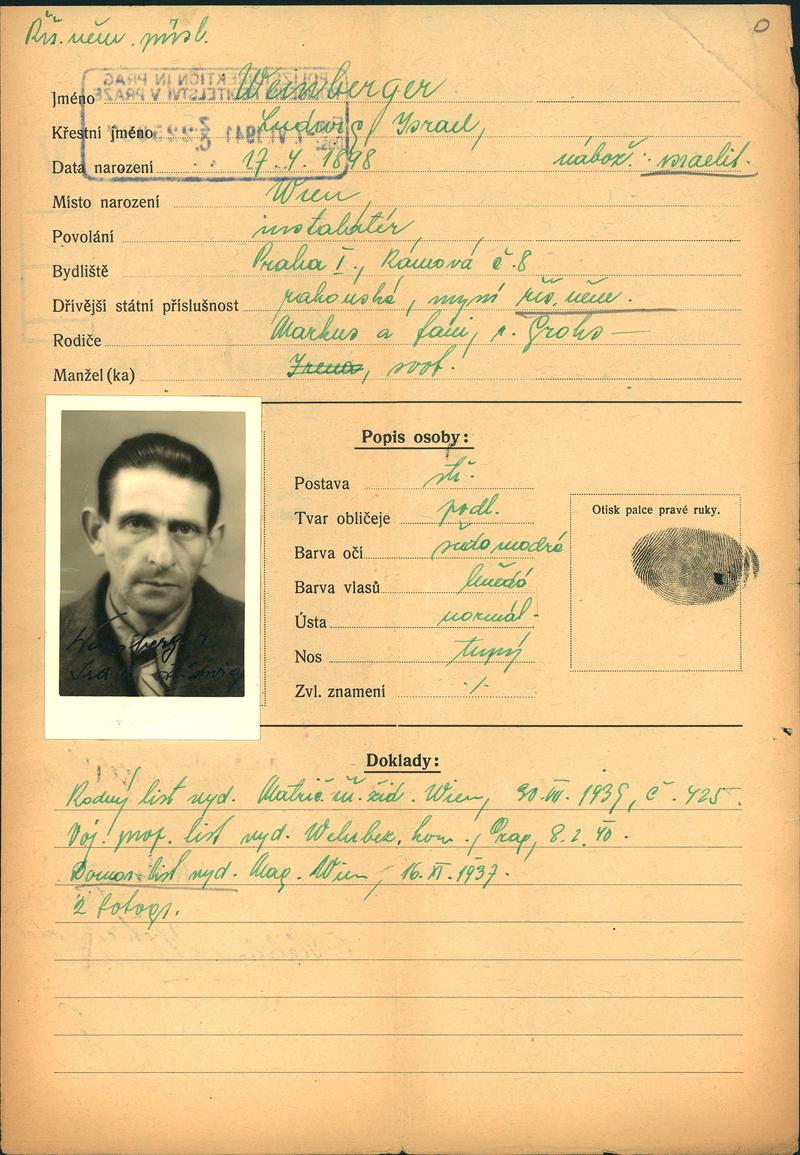 Řís. něm. přísl.
O
POLIZEIDIREKTION IN PRAG
POLICEJNÍ ŘEDITELSTVÍ V PRAZE
VI. 1941
Jméno Weinberger
Křestní jméno Ludwig Israel,
Data narození 17. 4. 1898 nábož.: israelit.
Místo narození Wien,
Povolání instalatér,
Bydliště Praha I., Rámová č. 8
Dřívější státní příslušnost rakouská, nyní řís. něm.
Rodiče Markus a Fani, r. Grohs
Manžel (ka) Irena, svob.
Popis osoby:
Postava stř.
Tvar obličeje podl.
Otisk palce pravé ruky.
Barva očí šedomodré
Barva vlasů hnědé
Ústa normál.
Nos tupý
Zvl. znamení ./.
Weinberger
Israel Ludwig
Doklady:
Rodný list vyd. Matrič. úř. žid. Wien, 1939, č. 425.
Voj. prop. list vyd. Wehrbez. kom., Prag, 8. 2. 40.
Domov. list vyd. Mag. Wien, 16. XI. 1937.
2 fotogr.